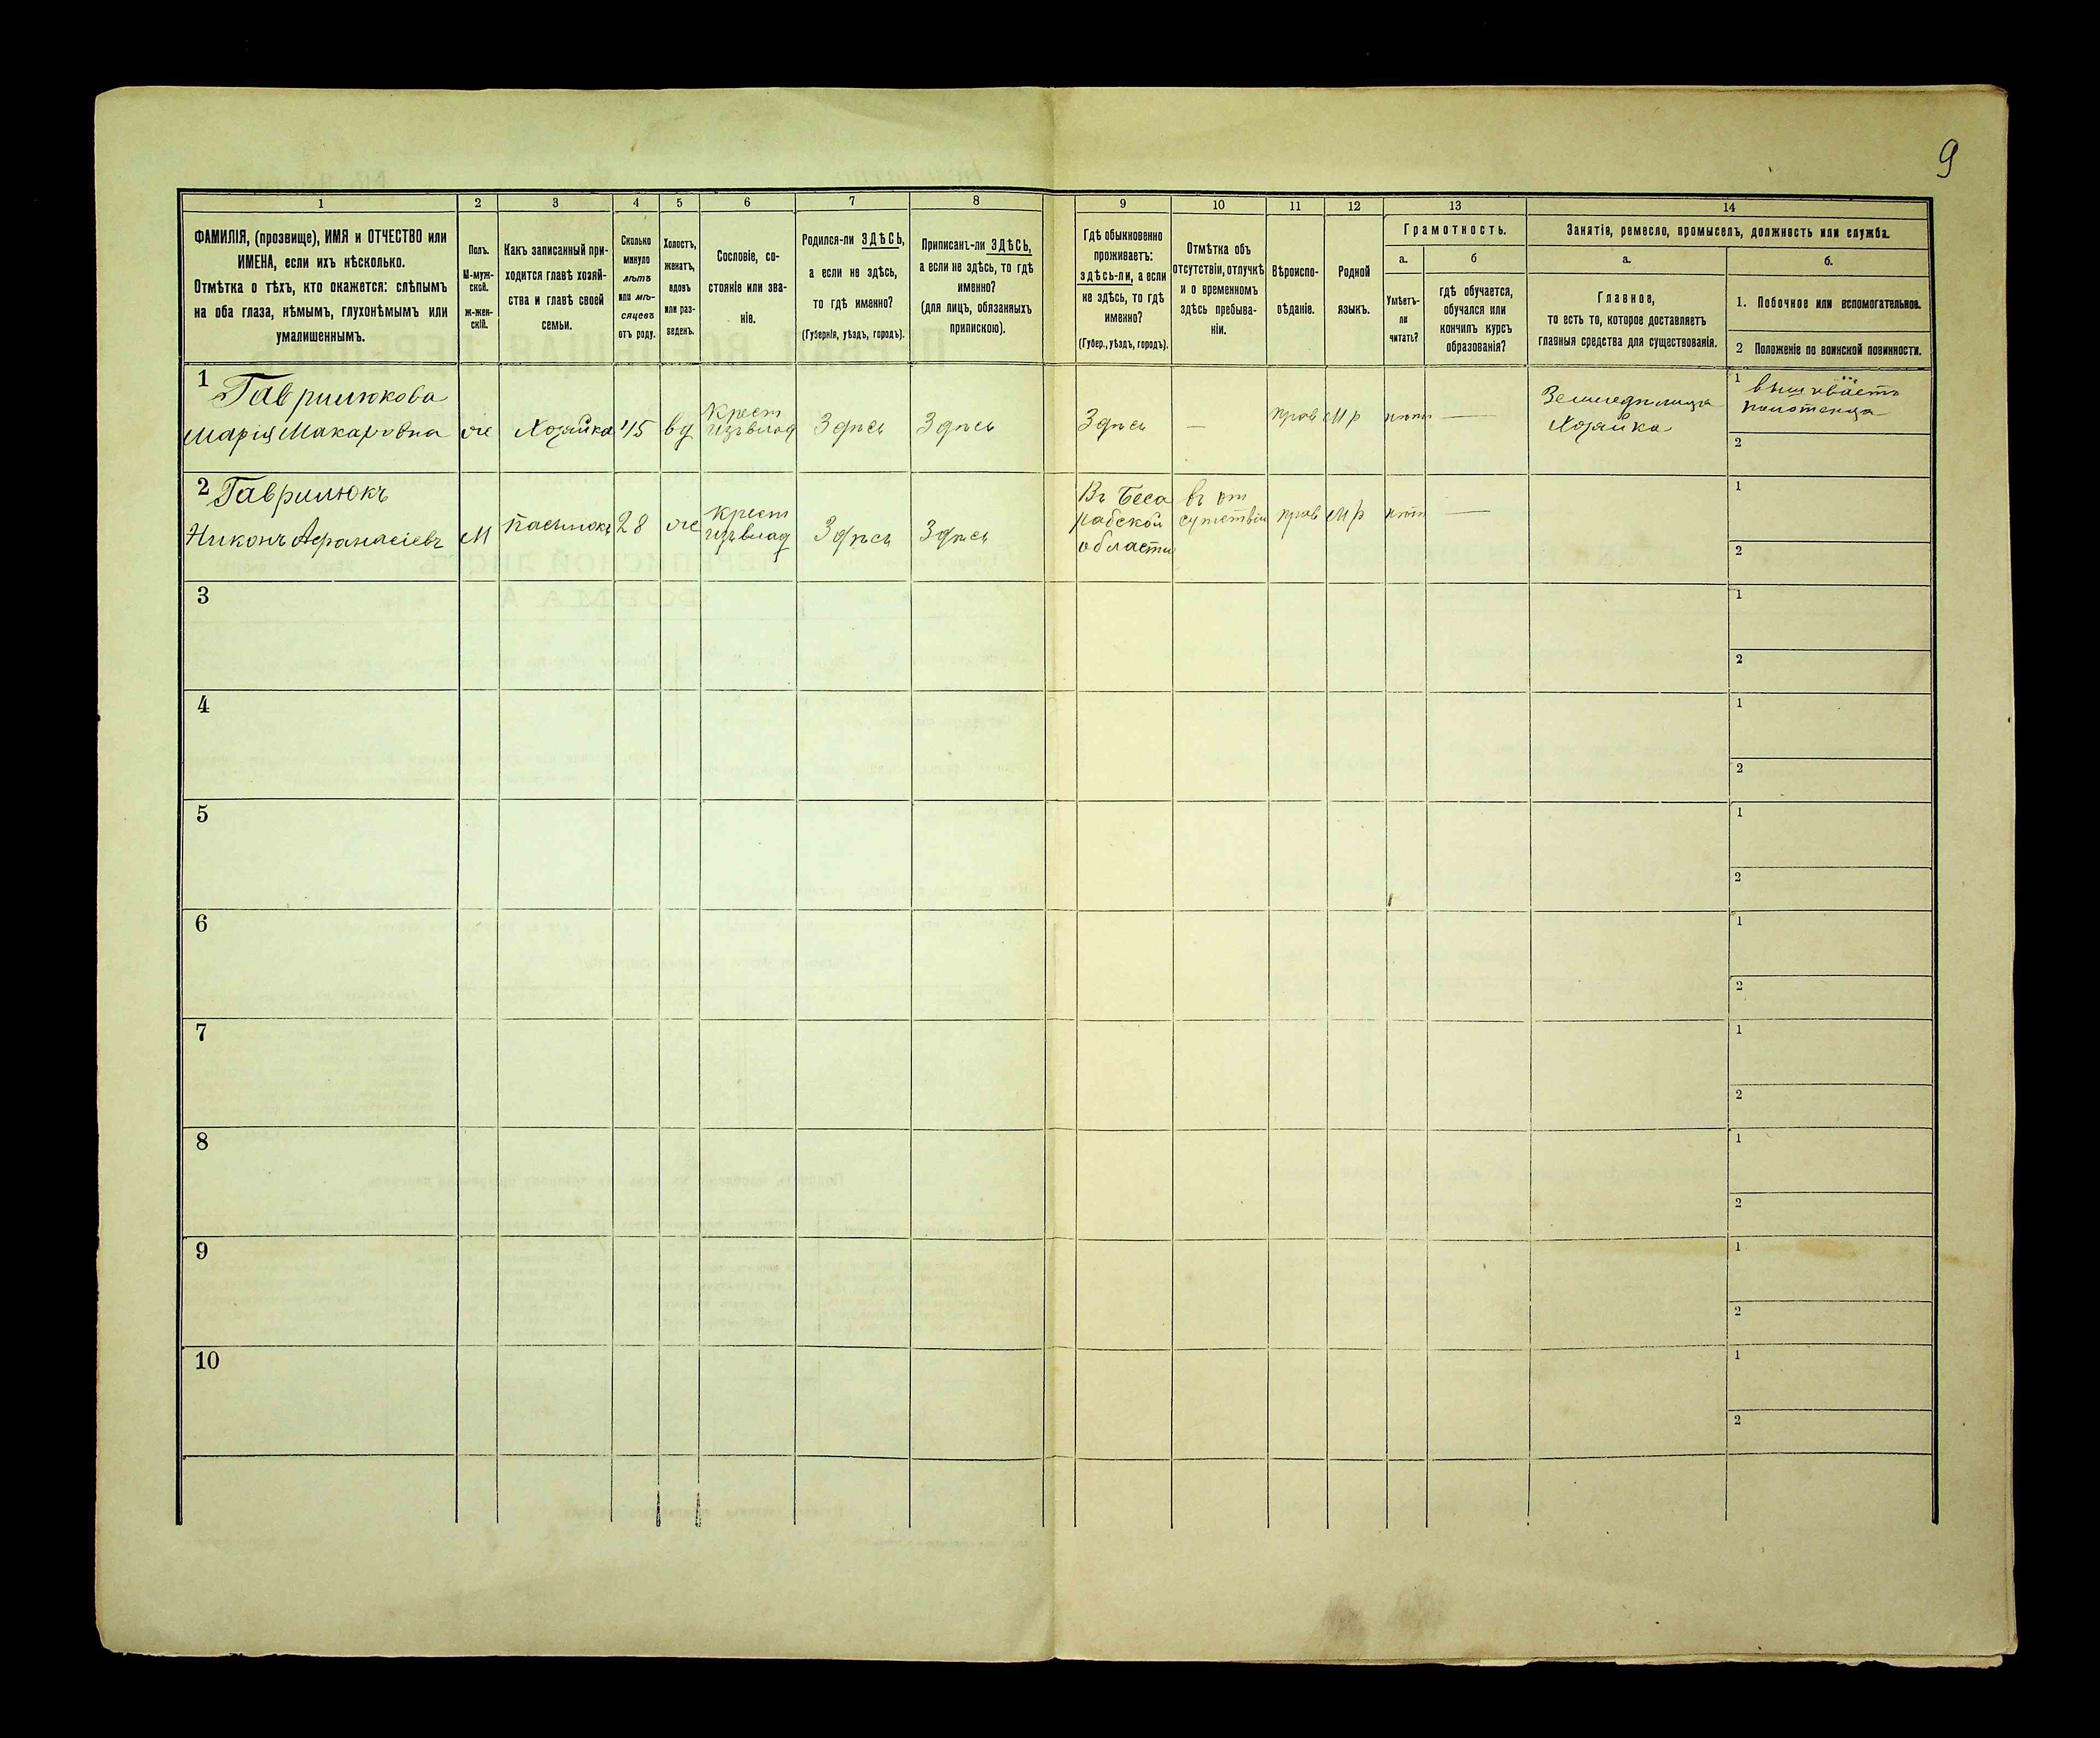 9
1 2 3 4 5 6 7 8 9 10 11 12 13 14
ФАМИЛІЯ, (прозвище), ИМЯ и ОТЧЕСТВО или
ИМЕНА, если ихъ нѣсколько.
Отмѣтка о тѣхъ, кто окажется: слѣпымъ
на оба глаза, нѣмымъ, глухонѣмымъ или
умалишеннымъ.
Полъ.
М-муж-
ской.
ж-жен-
скій.
Какъ записанный при-
ходится главѣ хозяй-
ства и главѣ своей
семьи.
Сколько
минуло
лѣтъ
или мѣ-
сяцевъ
отъ роду.
Холостъ,
женатъ,
вдовъ
или раз-
веденъ.
Сословіе, со-
стояніе или зва-
ніе.
Родился-ли ЗДѢСЬ,
а если не здѣсь,
то гдѣ именно?
(Губернія, уѣздъ, городъ).
Приписанъ-ли ЗДѢСЬ,
а если не здѣсь, то гдѣ
именно?
(для лицъ, обязанныхъ
припискою).
Гдѣ обыкновенно
проживаетъ:
здѣсь-ли, а если
не здѣсь, то гдѣ
именно?
(Губер., уѣздъ, городъ).
Отмѣтка объ
отсутствіи, отлучкѣ
и о временномъ
здѣсь пребыва-
ніи.
Вѣроиспо-
вѣданіе.
Родной
языкъ.
Грамотность.
а.
Умѣетъ-
ли
читать?
б
гдѣ обучается,
обучался или
кончилъ курсъ
образованія?
Занятіе, ремесло, промыселъ, должность или служба.
а.
Главное,
то есть то, которое доставляетъ
главныя средства для существованія.
б.
1. Побочное или вспомогательное.
2 Положеніе по воинской повинности.
1 Гаврилюкова
Марія Макаровна
ж
Хозяйка
45
вд
Крест
изъ влад
Здѣсь
Здѣсь
Здѣсь
—
прав
мр
нѣт
—
Земледѣлица
Хозяйка
1 вышиваетъ
полотенца
2
2 Гаврилюкъ
Никонъ Афанасіевъ
М
Пасынокъ
28
ж
крест
изъ влад
Здѣсь
Здѣсь
Въ Беса
рабской
области
въ от
сутствіи
прав
мр
нѣт
—
1
2
3
1
2
4
1
2
5
1
2
6
1
2
7
1
2
8
1
2
9
1
2
10
1
2